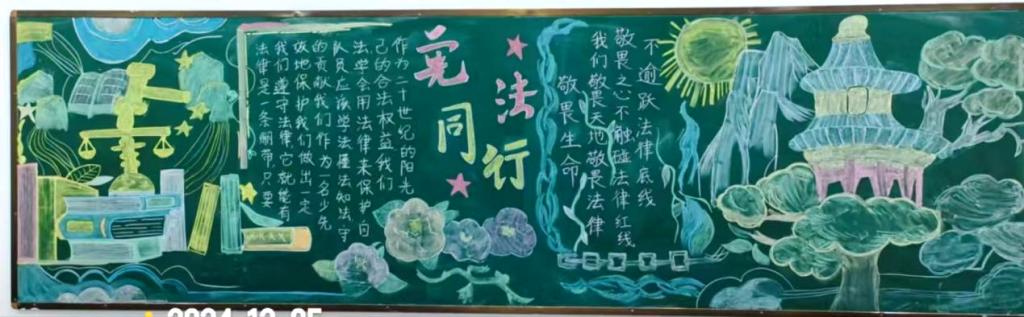 法律是一条绷带只要
我们遵守法律它就能有
效地保护我们做出一定
的贡献我们作为一名少先
队员应该学法懂法知法守
法学会用法律来保护自
己的合法权益我们
作为二十世纪的阳光
宪法
同行
敬畏生命
我们敬畏天地敬畏法律
敬畏之心不触碰法律红线
不逾跃法律底线